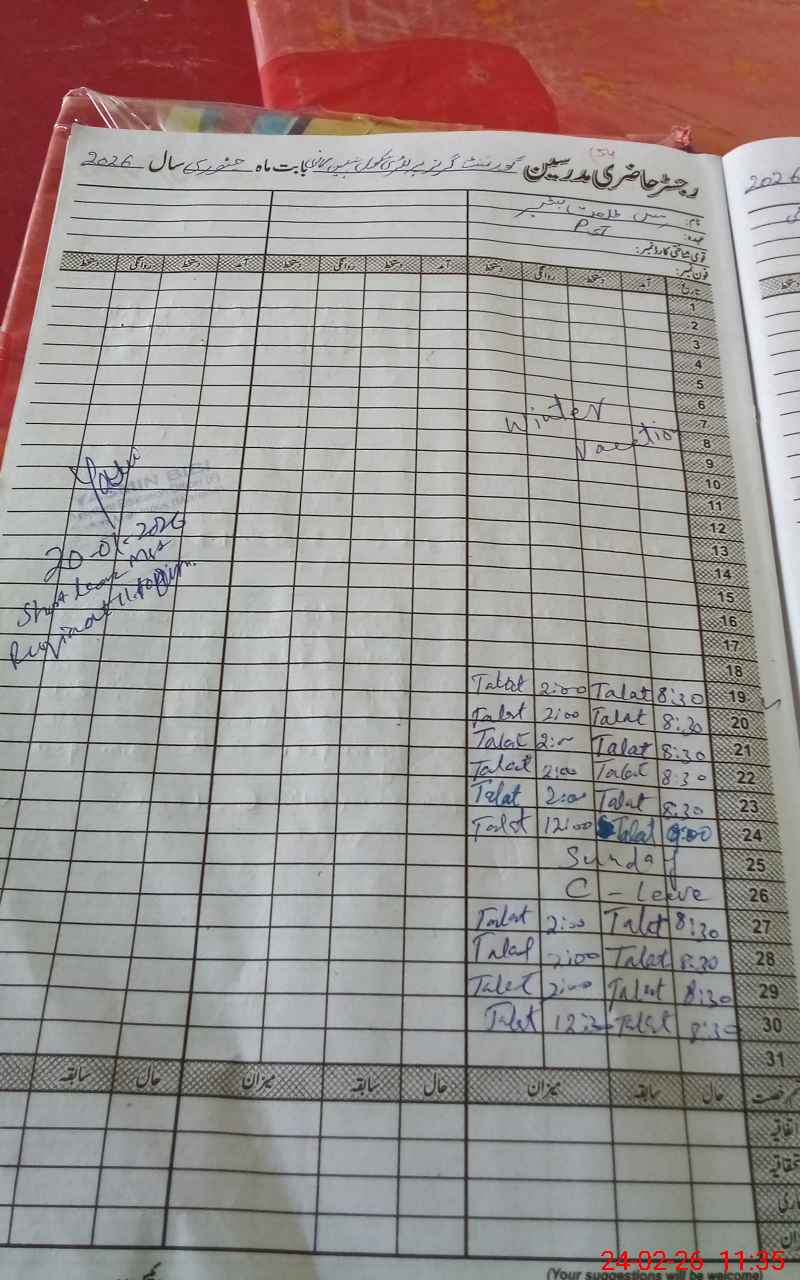 رجسٹر حاضری مدرسین گورنمنٹ گرلز پرائمری سکول بابت ماہ جنوری سال 2026
2026
نام:
عہدہ: PST
قومی شناختی کارڈ نمبر:
فون نمبر:
تاریخ آمد دستخط روانگی دستخط آمد دستخط روانگی دستخط آمد دستخط روانگی دستخط
1
2
3
4
5
6
7 Winter
8 Vacation
9
10
11
12
13
14
15
16
17
18
19 8:30 Talat 2:00 Talat
20 8:30 Talat 2:00 Talat
21 8:30 Talat 2:00 Talat
22 8:30 Talat 2:00 Talat
23 8:30 Talat 2:00 Talat
24 Talat 12:00 Talat
25 Sunday
26 C-Leave
27 8:30 Talat 2:00 Talat
28 8:30 Talat 2:00 Talat
29 8:30 Talat 2:00 Talat
30 8:30 Talat 12:30 Talat
31
20-01-2026
Short leave
حال سابقہ میزان حال سابقہ میزان حال سابقہ
اتفاقیہ
(Your suggestions will be welcome)
24-02-26 11:35